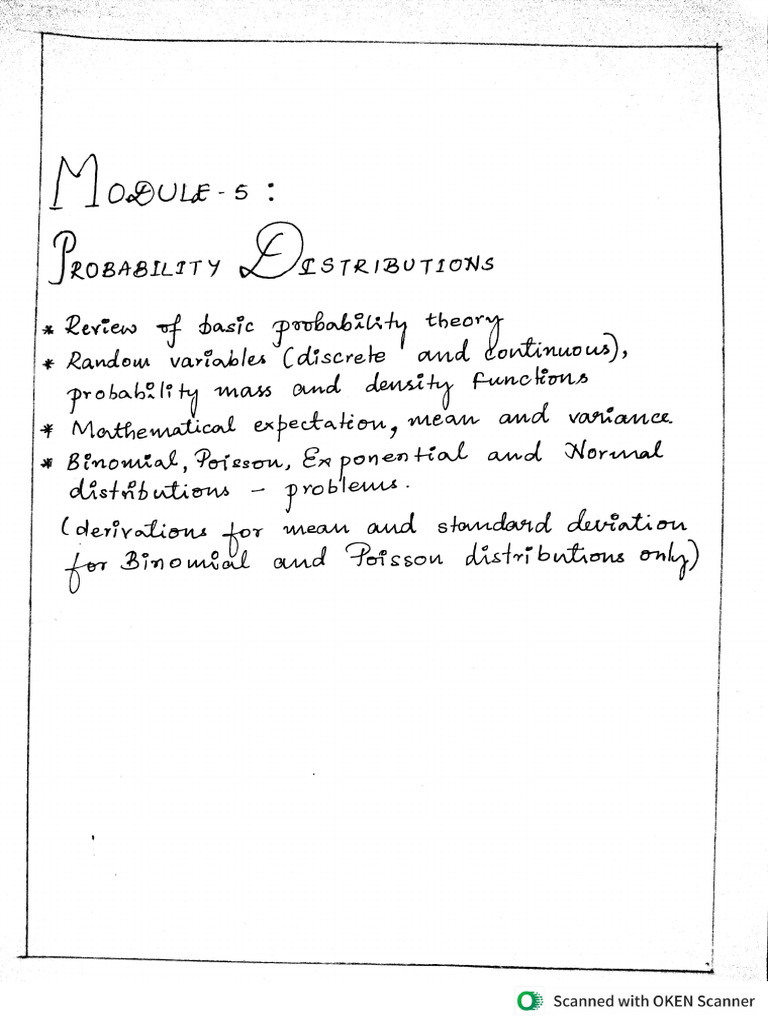 MODULE-5:
PROBABILITY DISTRIBUTIONS
* Review of basic probability theory
* Random variables (discrete and continuous),
probability mass and density functions
* Mathematical expectation, mean and variance.
* Binomial, Poisson, Exponential and Normal
distributions - problems.
(derivations for mean and standard deviation
for Binomial and Poisson distributions only)
Scanned with OKEN Scanner